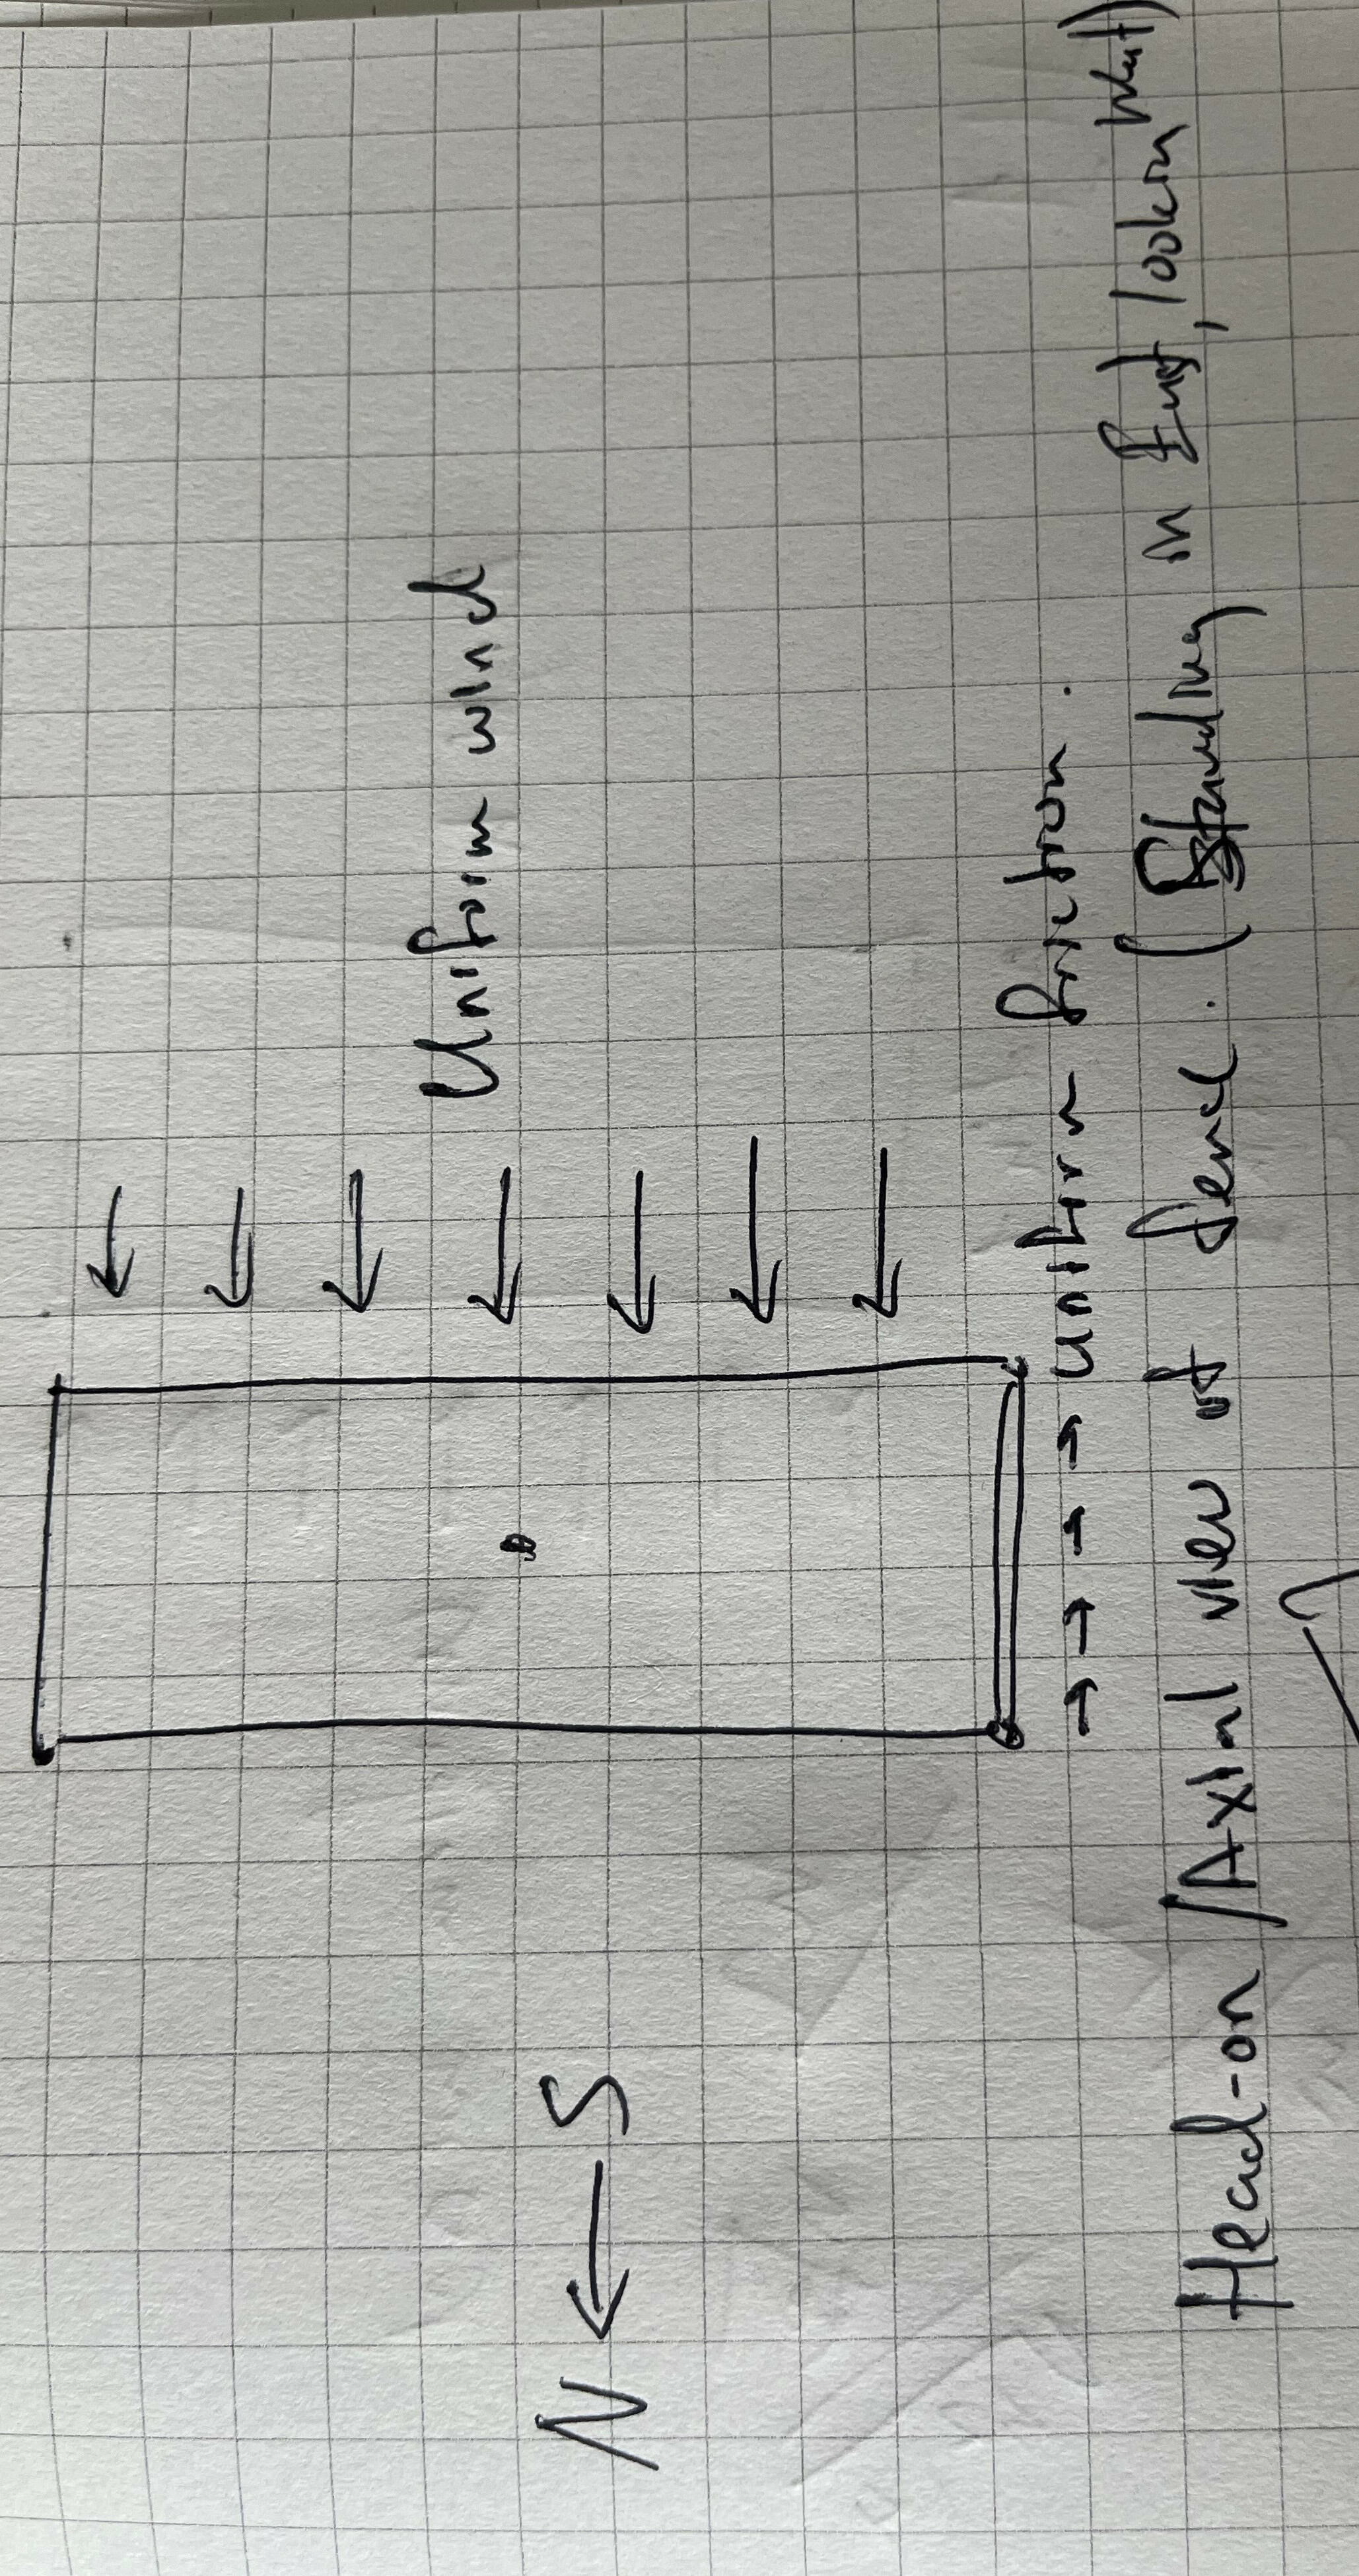 Uniform wind
N ← S
→ → → → uniform friction.
Head-on/Axial view of fence. (Standing in East, lookin West)